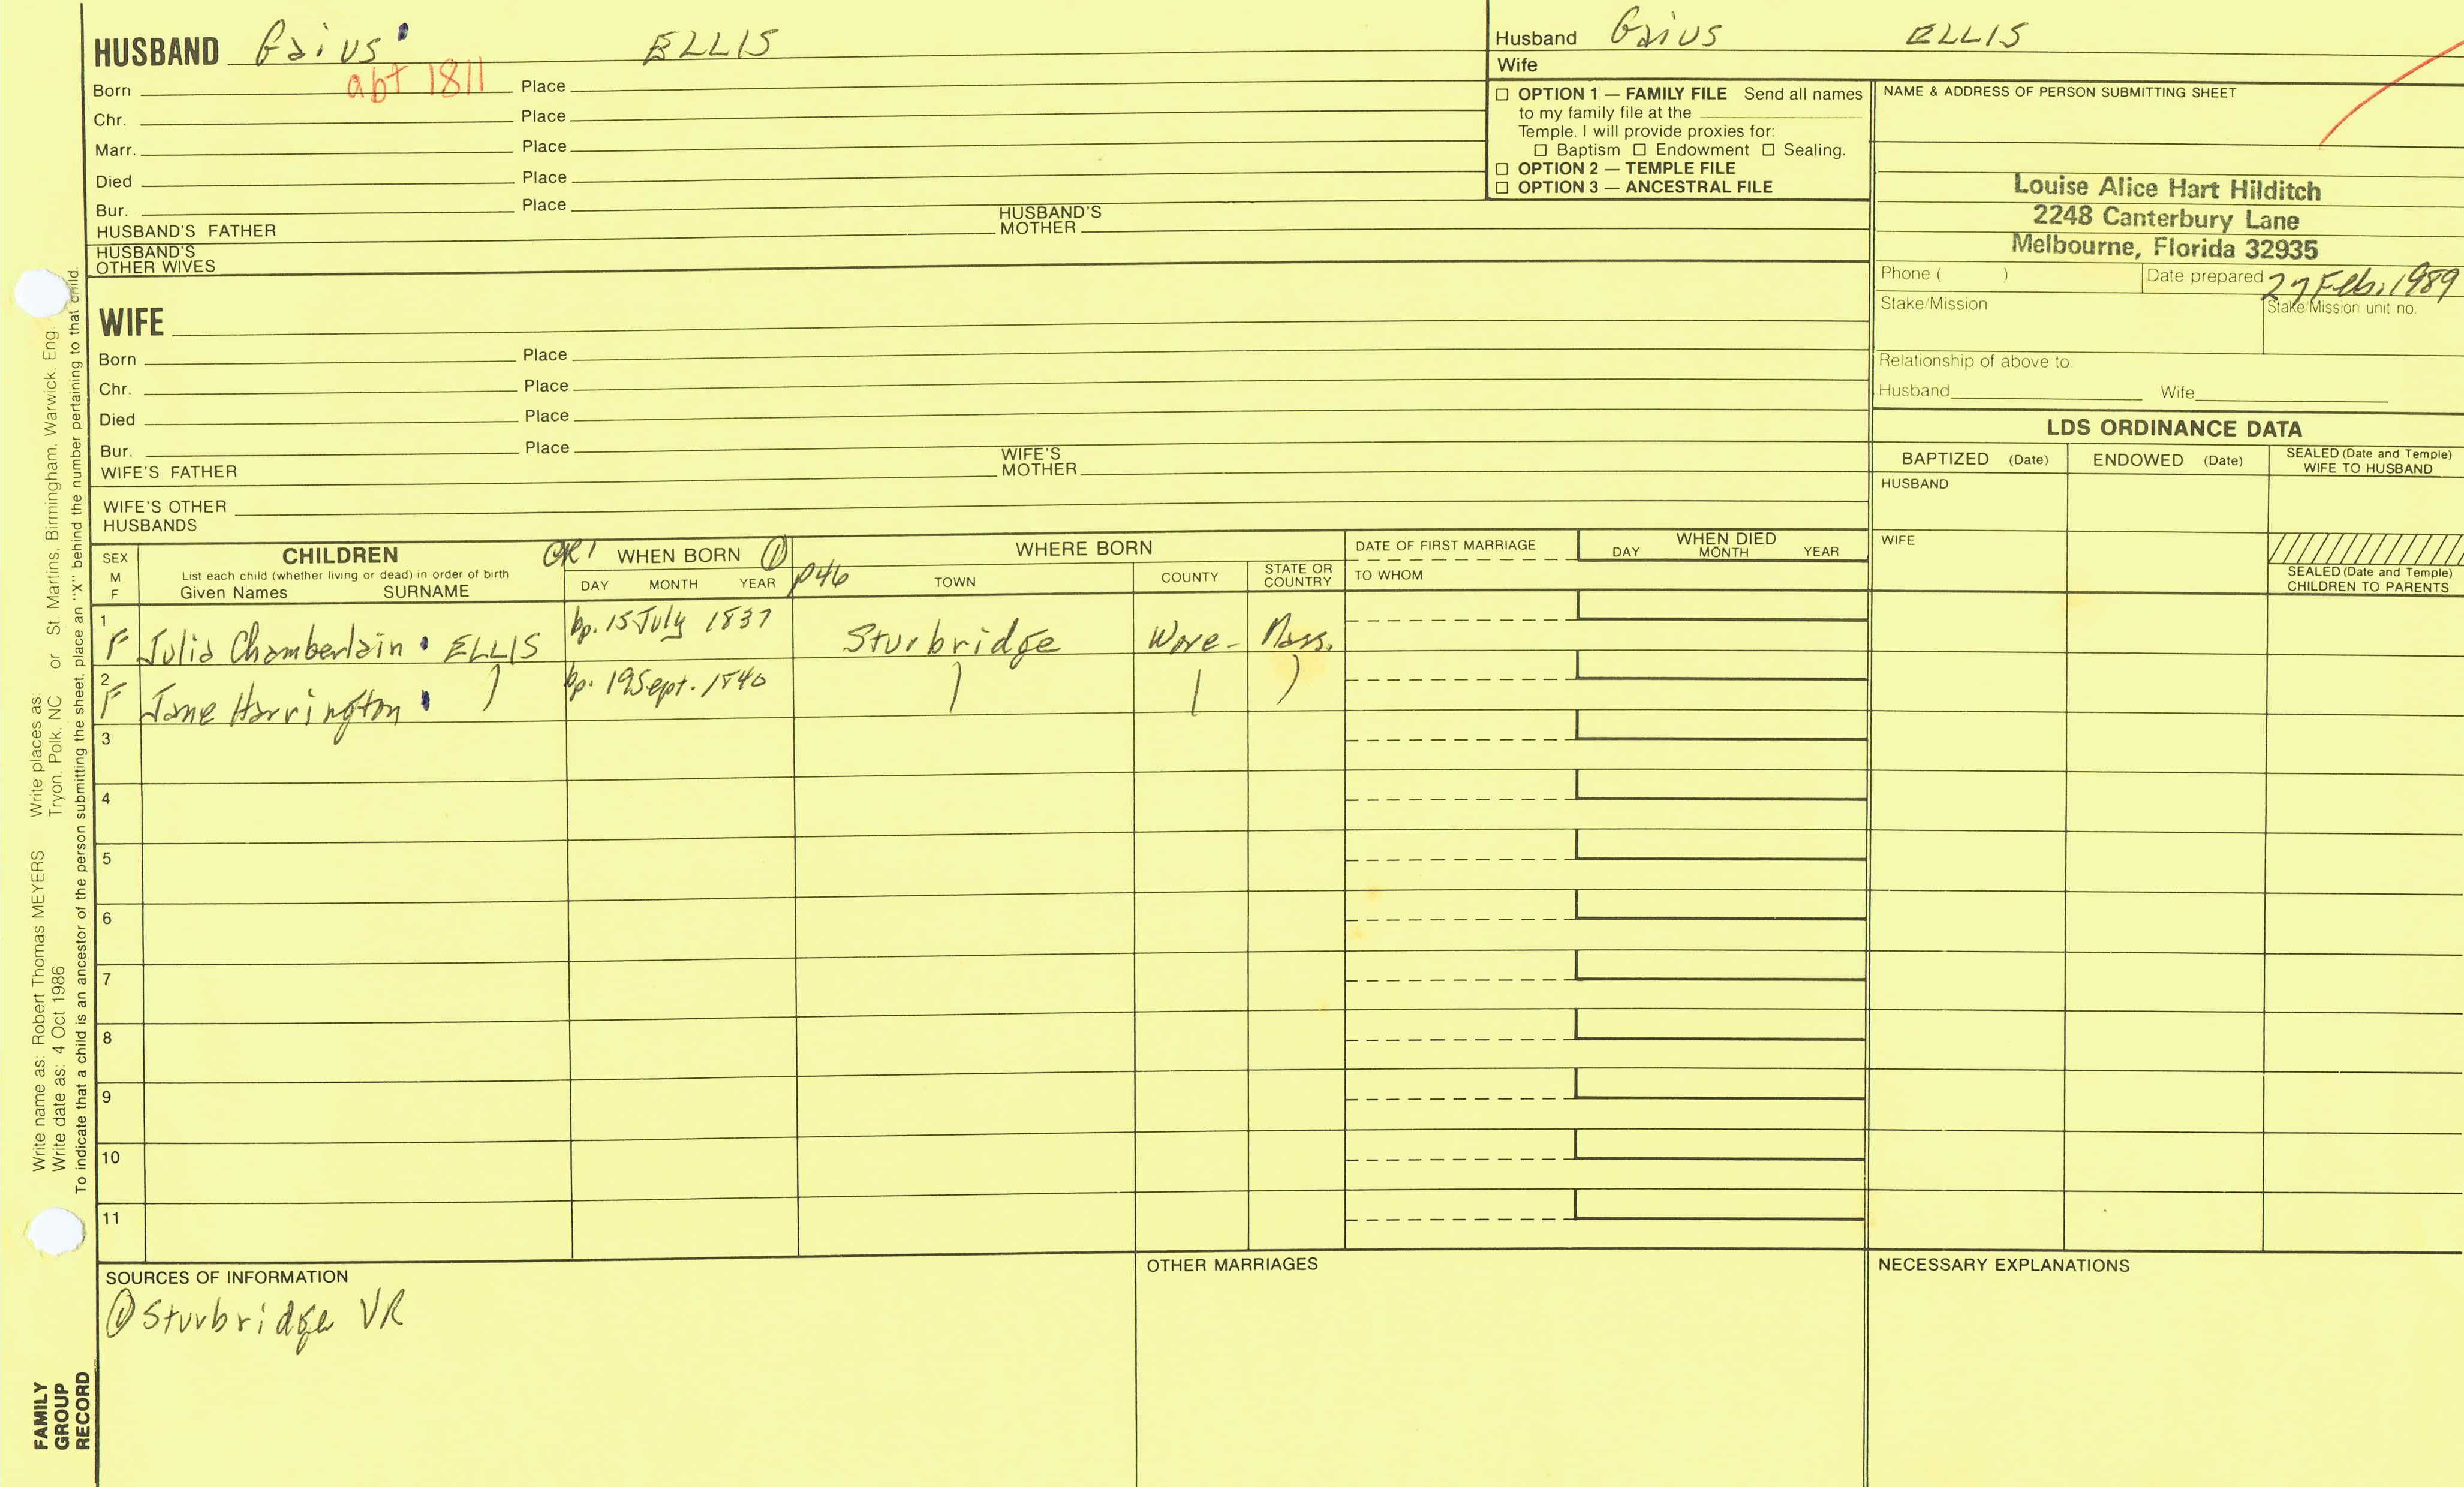 HUSBAND Gaius ELLIS
Born abt 1811 Place
Chr. Place
Marr. Place
Died Place
Bur. Place
HUSBAND'S FATHER HUSBAND'S MOTHER
HUSBAND'S OTHER WIVES
Husband Gaius ELLIS
Wife
OPTION 1 — FAMILY FILE Send all names
to my family file at the
Temple. I will provide proxies for:
Baptism Endowment Sealing.
OPTION 2 — TEMPLE FILE
OPTION 3 — ANCESTRAL FILE
NAME & ADDRESS OF PERSON SUBMITTING SHEET
Louise Alice Hart Hilditch
2248 Canterbury Lane
Melbourne, Florida 32935
Phone ( ) Date prepared 27 Feb. 1989
Stake/Mission Stake/Mission unit no.
Relationship of above to
Husband Wife
WIFE
Born Place
Chr. Place
Died Place
Bur. Place
WIFE'S FATHER WIFE'S MOTHER
WIFE'S OTHER
HUSBANDS
LDS ORDINANCE DATA
BAPTIZED (Date) ENDOWED (Date) SEALED (Date and Temple) WIFE TO HUSBAND
HUSBAND
WIFE
SEALED (Date and Temple)
CHILDREN TO PARENTS
SEX
M
F
CHILDREN
List each child (whether living or dead) in order of birth
Given Names SURNAME
WHEN BORN ①
DAY MONTH YEAR p46
WHERE BORN
TOWN COUNTY STATE OR COUNTRY
DATE OF FIRST MARRIAGE
TO WHOM
WHEN DIED
DAY MONTH YEAR
1 F Julia Chamberlain ELLIS bp. 15 July 1837 Sturbridge Worc- Mass.
2 F Jane Harrington ) bp. 19 Sept. 1840 ) | )
3
4
5
6
7
8
9
10
11
SOURCES OF INFORMATION
① Sturbridge VR
OTHER MARRIAGES
NECESSARY EXPLANATIONS
Write name as: Robert Thomas MEYERS Write places as:
Write date as: 4 Oct 1986 Tryon, Polk, NC or St. Martins, Birmingham, Warwick, Eng
To indicate that a child is an ancestor of the person submitting the sheet, place an "X" behind the number pertaining to that child.
FAMILY
GROUP
RECORD